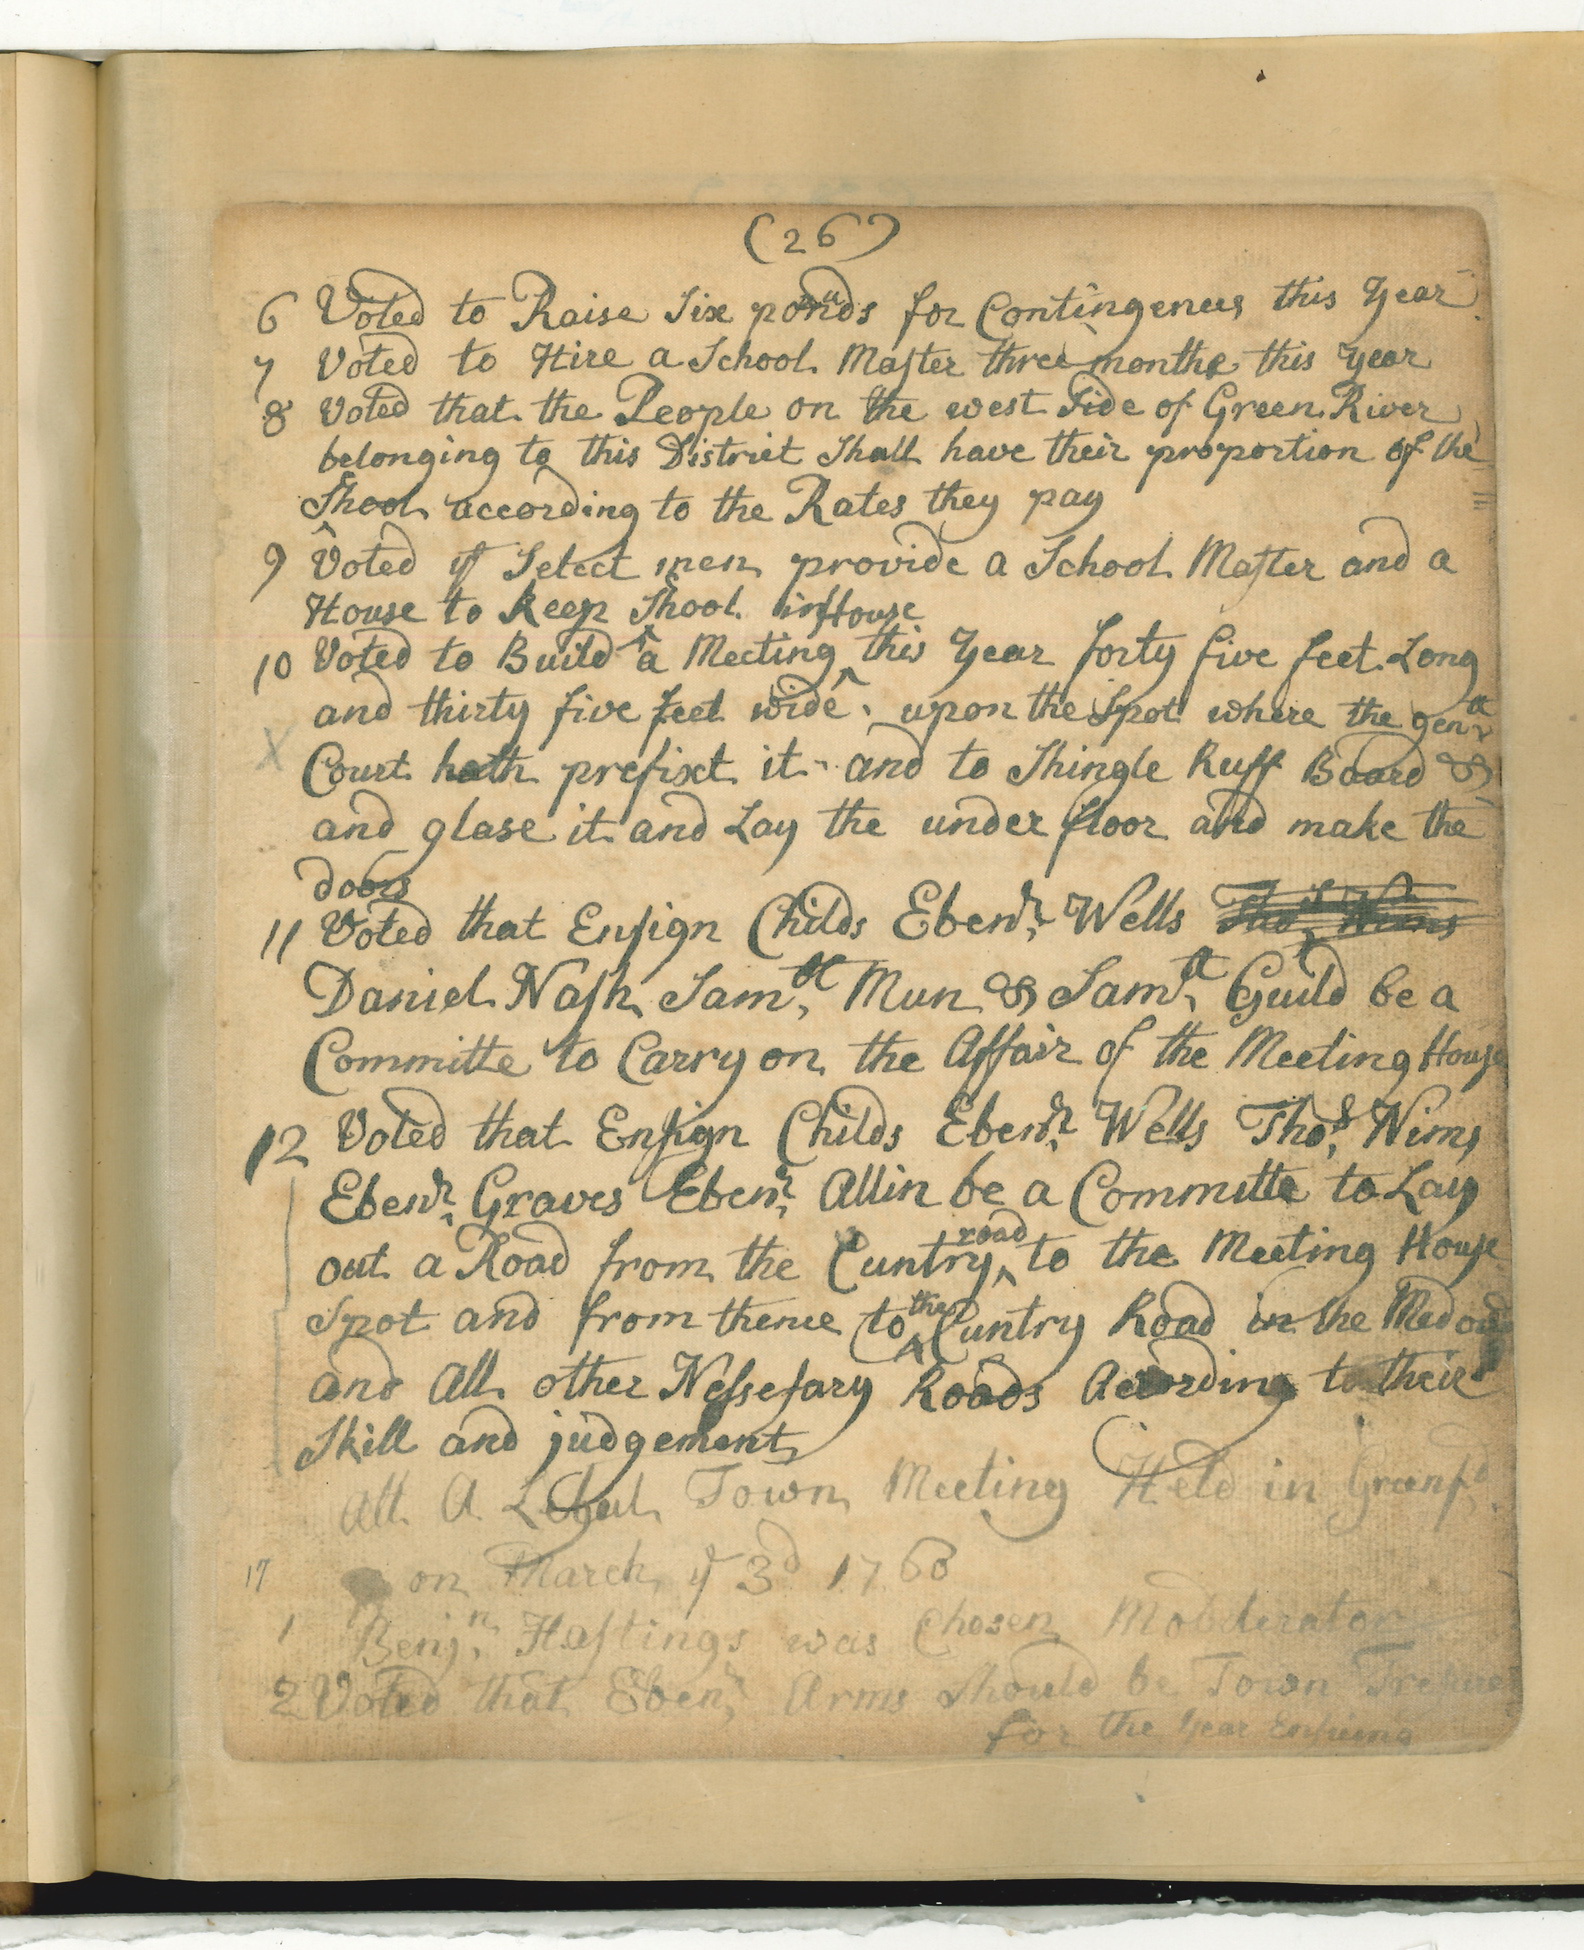 (26)
6 Voted to Raise Six pounds for Contingences this Year
7 Voted to Hire a School Master three months this Year
8 Voted that the People on the west Side of Green River
belonging to this District Shall have their proportion of the
Shool according to the Rates they pay
9 Voted ye Select men provide a School Master and a
House to Keep Shool in
House
10 Voted to Build a Meeting this Year forty five feet Long
and thirty five feet wide upon the Spot where the genll
Court hath prefixt it and to Shingle Ruff Board &
and glase it and Lay the under floor and make the
doors
11 Voted that Ensign Childs Ebenr Wells
Daniel Nash Samll Mun & Samll Guild be a
Committe to Carry on the Affair of the Meeting House
12 Voted that Ensign Childs Ebenr Wells Thos Nims
Ebenr Graves Ebenr Allin be a Committe to Lay
out a Road from the Cuntry road to the Meeting House
Spot and from thence to the Cuntry Road in the
and All other Nessesary Roads Acording to their
Skill and judgement
Att A Legul Town Meeting Held in Greenfd
17 on March ye 3d 1760
1 Benjn Hastings was Chosen Modderator
2 Voted that Ebenr Arms Should be Town
for the Year Ensuing